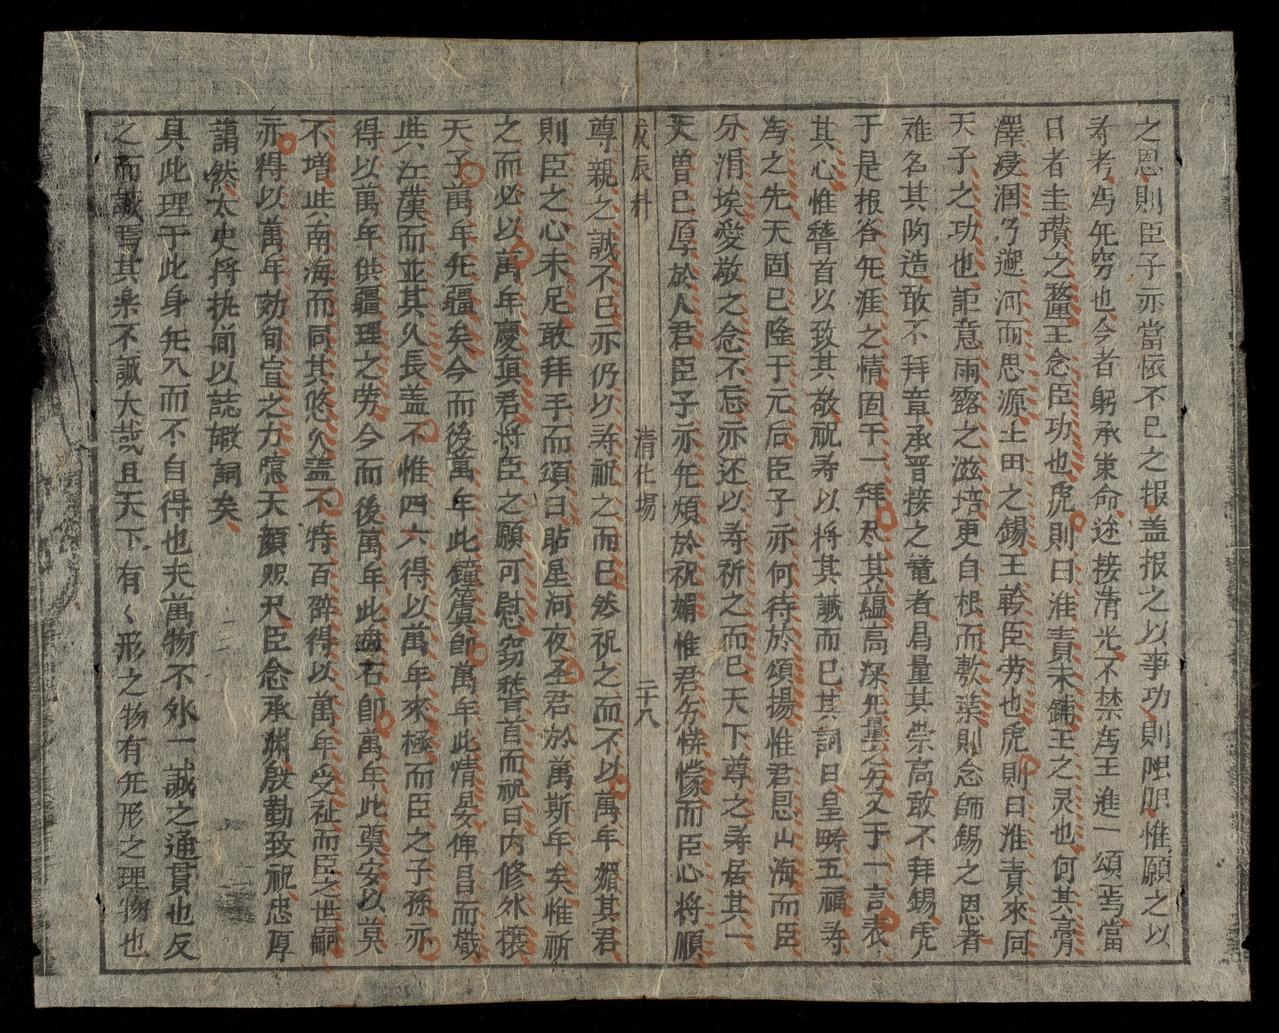 之恩則臣子亦當依不已之报盖报之以事功則限眼惟願之以
寿考為旡窮也今者躬承柬命迩接清光不禁為王進一頌焉當
日者圭瓚之釐王念臣功也虎則曰淮濆未鋪王之灵也何其膏
澤浸潤乃遡河而思源土田之錫王軫臣劳也虎則曰淮濆來同
天子之功也詎意雨露之滋培更自根而敷葉則念師錫之恩者
难名其陶造敢不拜章承晋接之竜者曷量其崇高敢不拜錫虎
于是报答旡涯之情固于一拜尽其蘊高深旡量之分又于一言表
其心惟稽首以致其敬祝寿以将其誠而已其詞曰皇疇五福寿
為之先天固已隆于元后臣子亦何待於頌揚惟君恩山海而臣
分涓埃愛敬之念不忘亦还以寿祈之而已天下尊之寿居其一
天曽已厚於人君臣子亦旡煩於祝媚惟君分怫懞而臣心将順
戊辰科
清化場
二十八
尊親之誠不已亦仍以寿祝之而已然祝之而不以萬年媚其君
則臣之心未足敢拜手而頌曰貼星河夜圣君於萬斯年矣惟祈
之而必以萬年慶與君将臣之願可慰窃稽首而祝曰内修外攘
天子萬年旡疆矣今而後萬年此鐘簴即萬年此情晏俾昌而熾
此江漢而並其久長盖不惟四六得以萬年來極而臣之子孫亦
得以萬年供疆理之劳今而後萬年此卣即萬年此奠安以莫
不增此南海而同其悠久盖不特百辟得以萬年受祉而臣之世嗣
亦得以萬年効旬宣之力噫天顔咫尺臣念承渊殷勤致祝忠厚
謂然太史将挑前以誌嘏詞矣
具此理于此身旡入而不自得也夫萬物不外一誠之通貫也反
之而誠焉其楽不誠大哉且天下有〻形之物有旡形之理物也